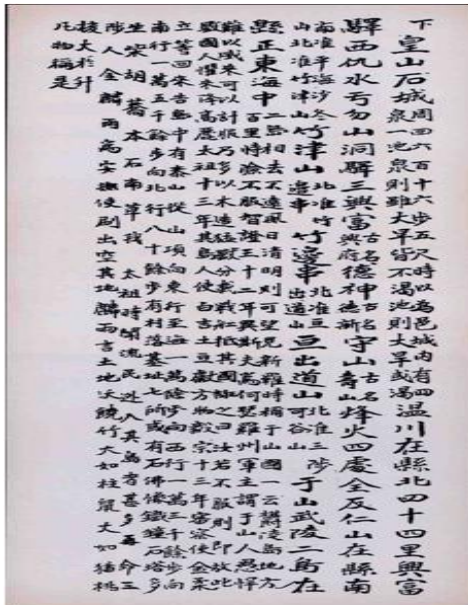 下皇山石城周回六百十六步五尺時以爲邑城內有四泉一池泉則雖大旱皆不渴池則大旱或渴溫川在縣北四十四里興富
驛西仇水亐勿山洞驛三興富古名興府德神古名德新守山古名壽山烽火四處全反仁山在縣南
南准平海沙冬山北准竹津山竹津山北准竹邊串竹邊串北准亘出道山亘出道山北准三陟可谷山于山武陵二島在
縣正東海中二島相去不遠風日清明則可望見新羅時稱于山國一云鬱陵島地方
百里恃險不服智證王十二年異斯夫爲何瑟羅州軍主謂于山人愚悍
難以威來可以計服乃多以木造猛獸分載戰舡抵其國誑之曰汝若不服則即放此
獸國人懼來降高麗太祖十三年其島人使白吉土豆獻方物毅宗十三年審察使金柔
立等回來告島中有泰山從山頂向東行至海一萬餘步向西行一萬三千餘步向
南行一萬五千餘步向北行八十餘步有村落基址七所或有石佛像鐵鐘石塔多
生柴胡蒿本石南草我太祖時聞流民逃入其島者甚多再命三
陟人金麟雨爲安撫使刷出空其地麟雨言土地沃饒竹大如柱鼠大如猫桃
核大於升
凡物稱是